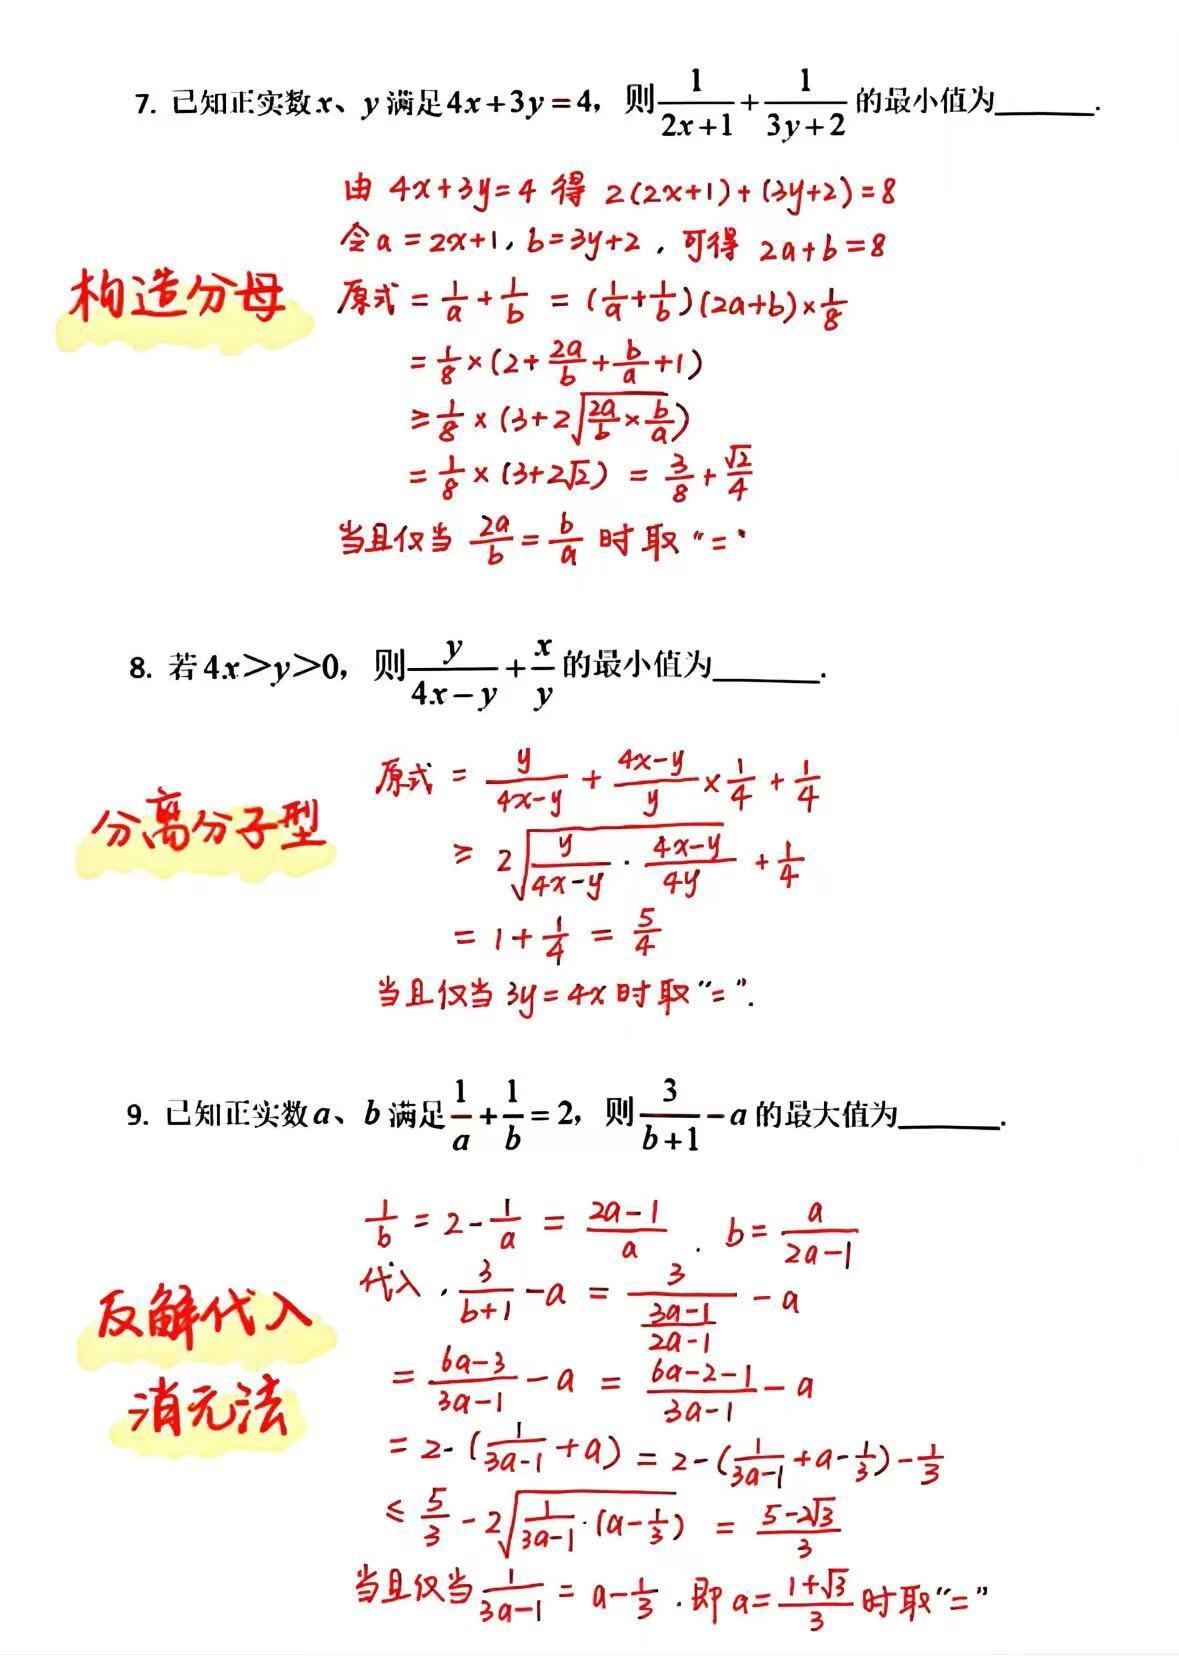 7. 已知正实数x、y满足4x+3y=4，则1/(2x+1)+1/(3y+2)的最小值为______.
由 4x+3y=4 得 2(2x+1)+(3y+2)=8
令a=2x+1, b=3y+2, 可得 2a+b=8
构造分母
原式 = 1/a + 1/b = (1/a+1/b)(2a+b)×1/8
= 1/8×(2+2a/b+b/a+1)
≥ 1/8×(3+2√(2a/b×b/a))
= 1/8×(3+2√2) = 3/8+√2/4
当且仅当 2a/b = b/a 时取 "="
8. 若4x>y>0，则y/(4x-y)+x/y的最小值为______.
原式 = y/(4x-y) + (4x-y)/y×1/4 + 1/4
分离分子型
≥ 2√(y/(4x-y)·(4x-y)/4y) + 1/4
= 1+1/4 = 5/4
当且仅当 3y=4x时取"=".
9. 已知正实数a、b满足1/a+1/b=2，则3/(b+1)-a的最大值为______.
1/b = 2-1/a = (2a-1)/a . b=a/(2a-1)
代入, 3/(b+1)-a = 3/((3a-1)/(2a-1)) - a
反解代入
消元法
= (6a-3)/(3a-1) - a = (6a-2-1)/(3a-1) - a
= 2-(1/(3a-1)+a) = 2-(1/(3a-1)+a-1/3)-1/3
≤ 5/3-2√(1/(3a-1)·(a-1/3)) = (5-2√3)/3
当且仅当1/(3a-1) = a-1/3 .即a=(1+√3)/3时取"="